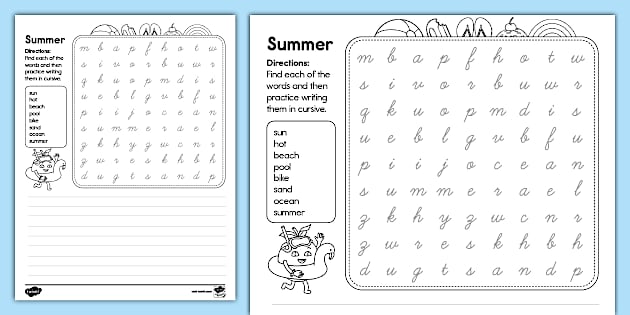 Summer
Directions:
Find each of the
words and then
practice writing
them in cursive.
sun
hot
beach
pool
bike
sand
ocean
summer
m b a p f h o t w
s i v o r b u w r
q k u o p m d i s
u e b l g v b f u
p i i j o c e a n
s u m m e r a e l
z k h y z w c n r
z w r e s k h b h
d u g t s a n d p
Summer
Directions:
Find each of the
words and then
practice writing
them in cursive.
sun
hot
beach
pool
bike
sand
ocean
summer
m b a p f h o t w
s i v o r b u w r
q k u o p m d i s
u e b l g v b f u
p i i j o c e a n
s u m m e r a e l
z k h y z w c n r
z w r e s k h b h
d u g t s a n d p